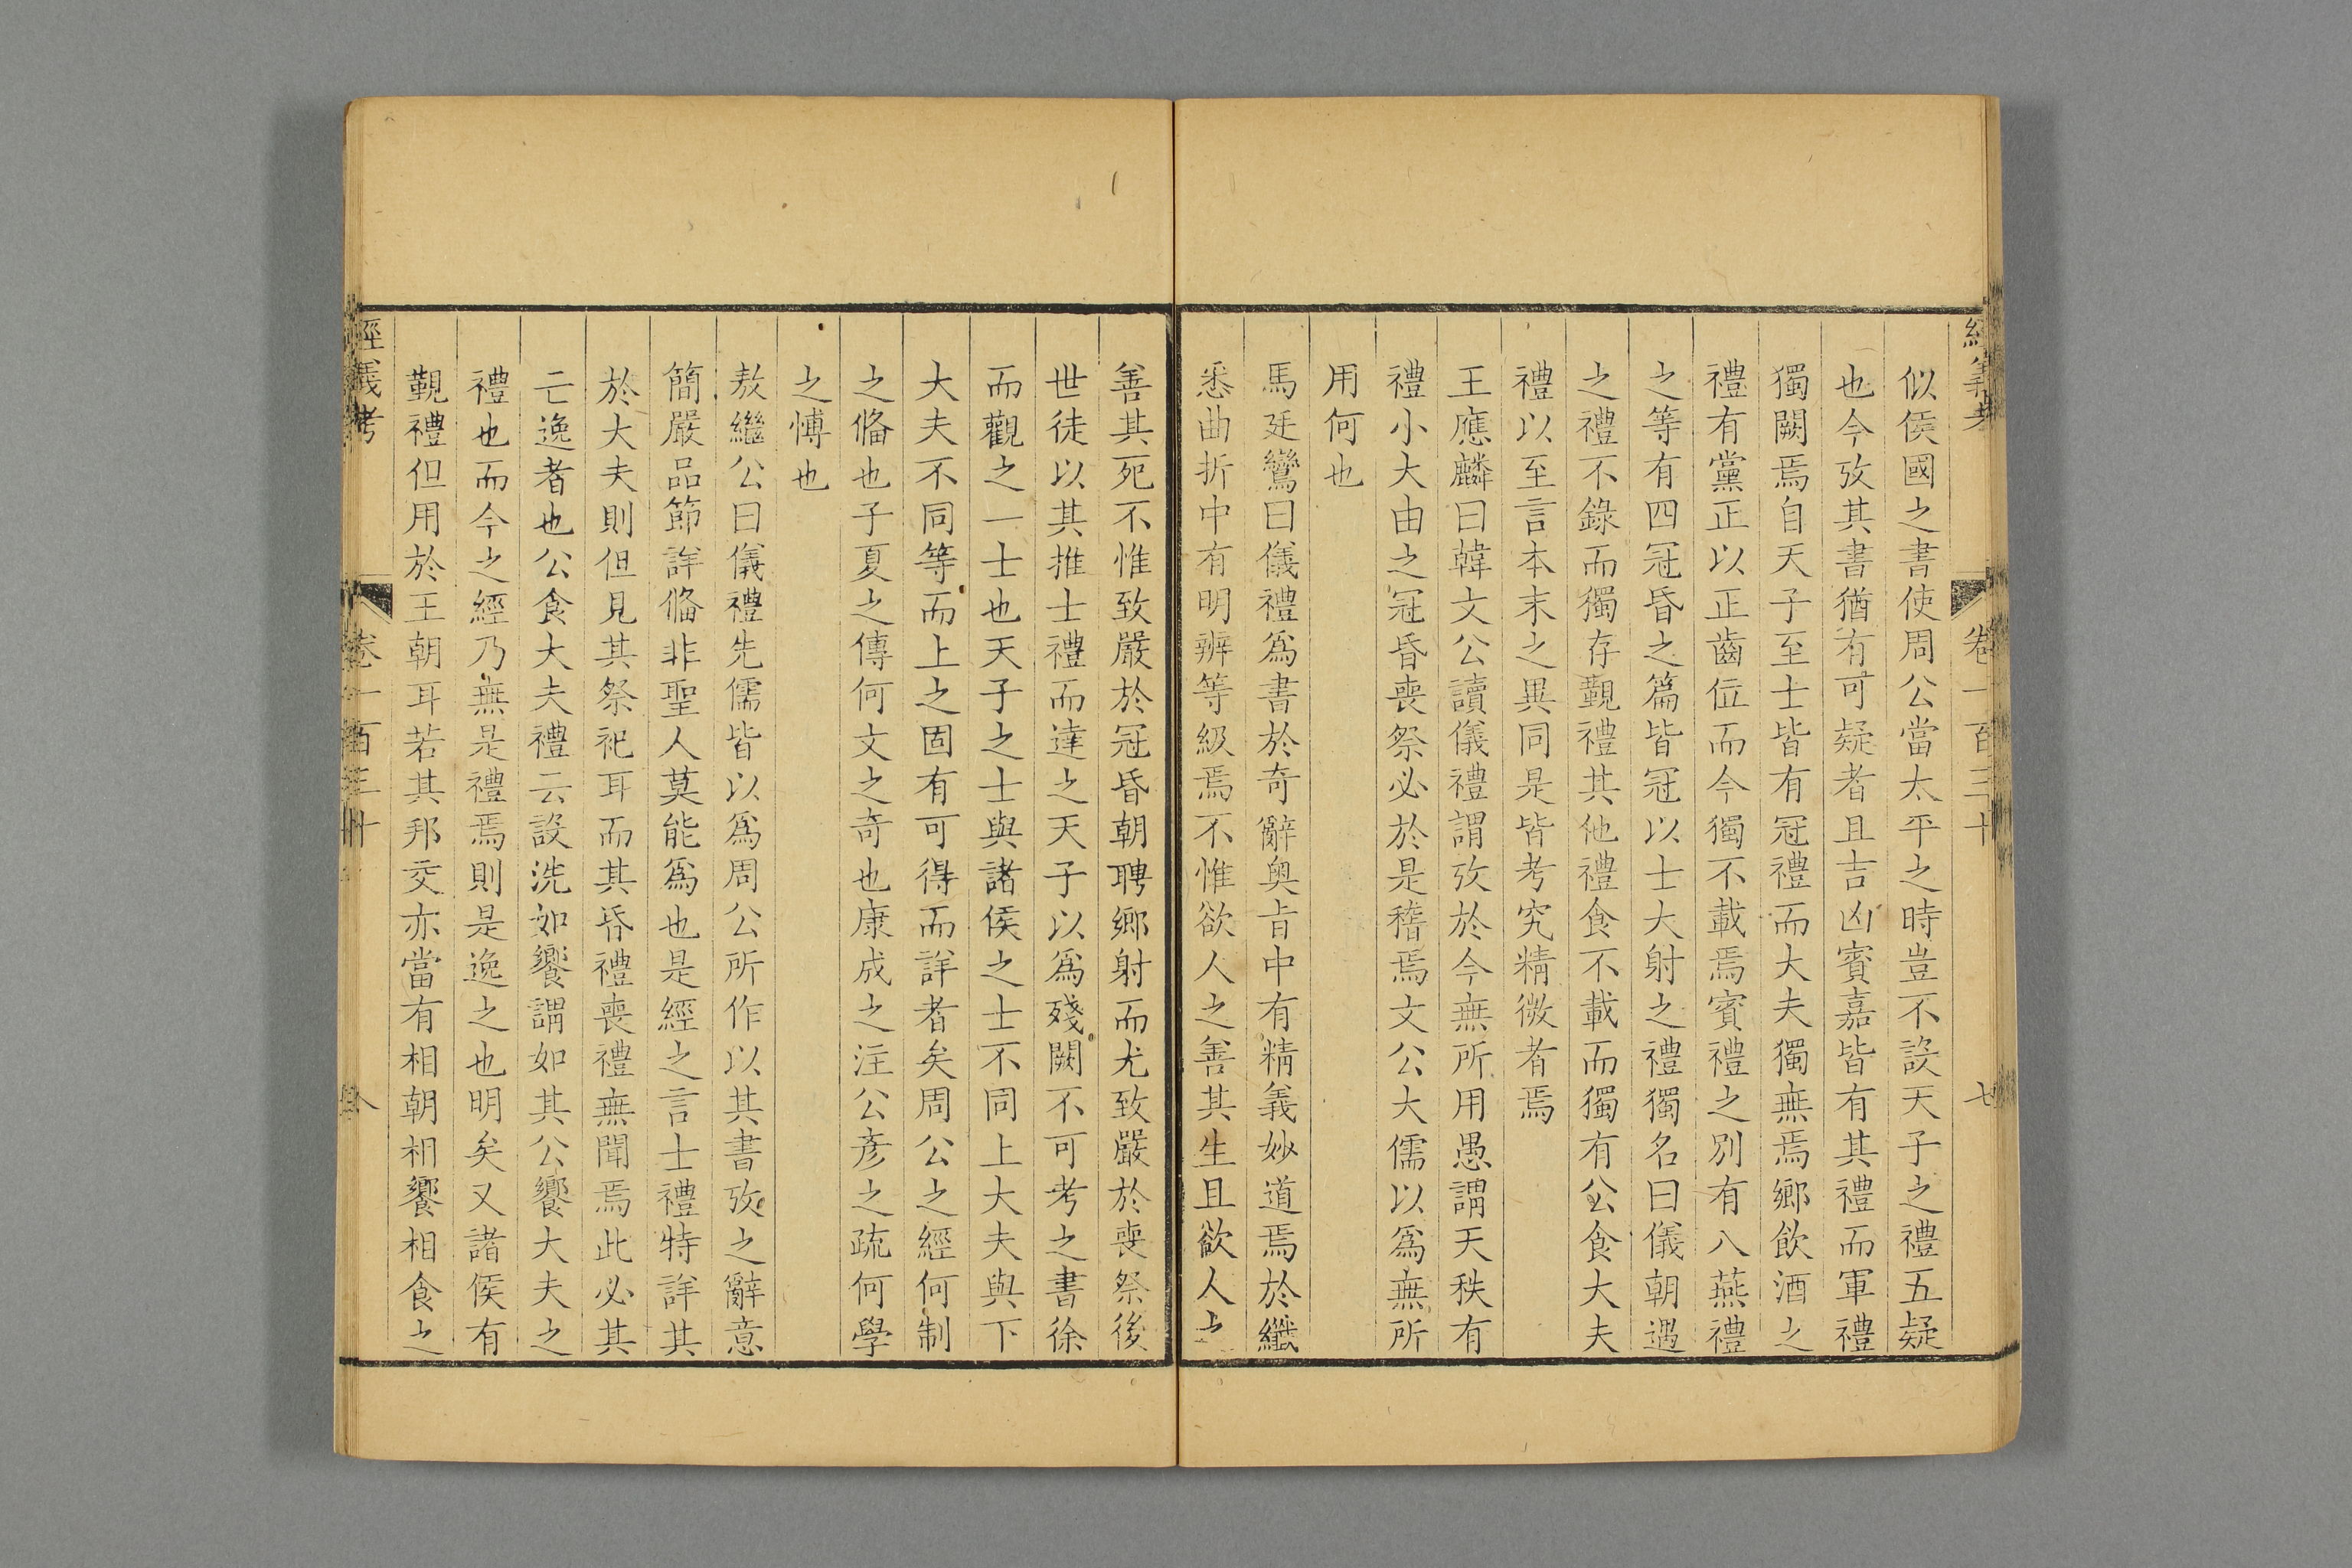 經義考 卷一百三十 七
似侯國之書使周公當太平之時豈不設天子之禮五疑
也今攷其書猶有可疑者且吉凶賓嘉皆有其禮而軍禮
獨闕焉自天子至士皆有冠禮而大夫獨無焉鄉飲酒之
禮有黨正以正齒位而今獨不載焉賓禮之別有八燕禮
之等有四冠昏之篇皆冠以士大射之禮獨名曰儀朝遇
之禮不錄而獨存覲禮其他禮食不載而獨有公食大夫
禮以至言本末之異同是皆考究精微者焉
王應麟曰韓文公讀儀禮謂攷於今無所用愚謂天秩有
禮小大由之冠昏喪祭必於是稽焉文公大儒以爲無所
用何也
馬廷鸞曰儀禮爲書於奇辭奧旨中有精義妙道焉於纖
悉曲折中有明辨等級焉不惟欲人之善其生且欲人之
善其死不惟致嚴於冠昏朝聘鄉射而尤致嚴於喪祭後
世徒以其推士禮而達之天子以爲殘闕不可考之書徐
而觀之一士也天子之士與諸侯之士不同上大夫與下
大夫不同等而上之固有可得而詳者矣周公之經何制
之俻也子夏之傳何文之奇也康成之注公彥之疏何學
之博也
敖繼公曰儀禮先儒皆以爲周公所作以其書攷之辭意
簡嚴品節詳俻非聖人莫能爲也是經之言士禮特詳其
於大夫則但見其祭祀耳而其昏禮喪禮無聞焉此必其
亡逸者也公食大夫禮云設洗如饗謂如其公饗大夫之
禮也而今之經乃無是禮焉則是逸之也明矣又諸侯有
覲禮但用於王朝耳若其邦交亦當有相朝相饗相食之
經義考 卷一百三十 八